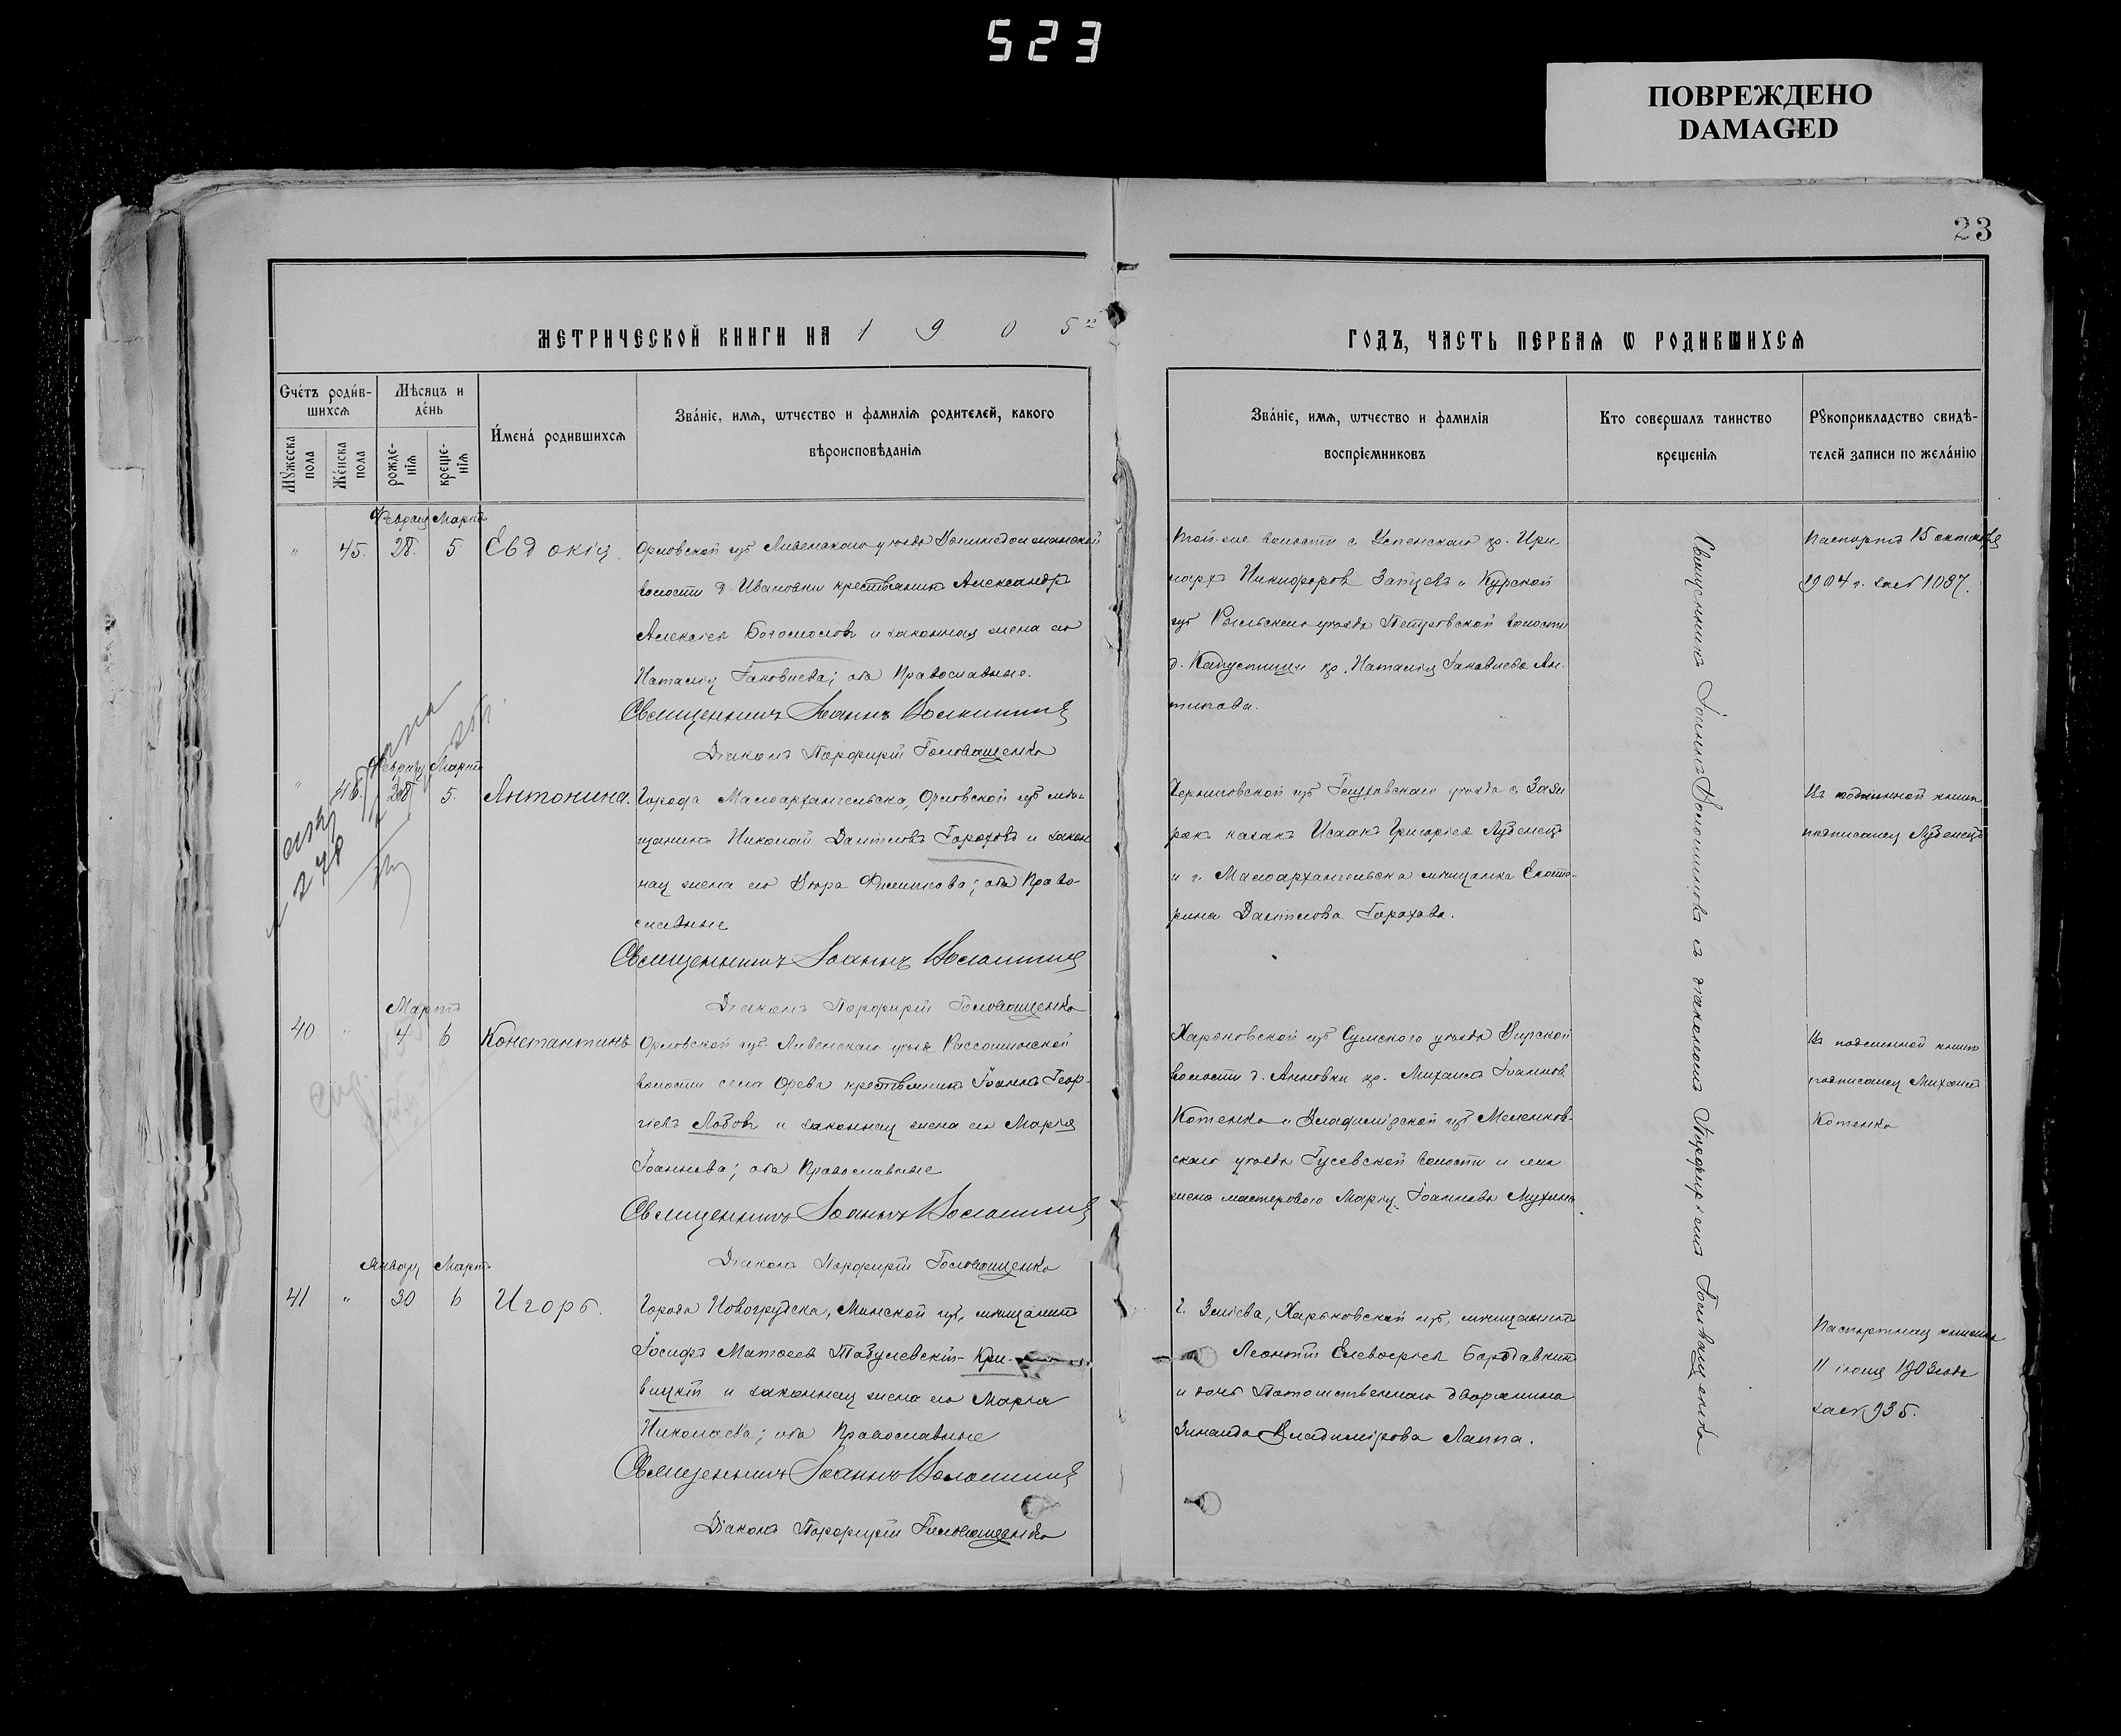 523
ПОВРЕЖДЕНО
DAMAGED
23
МЕТРИЧЕСКОЙ КНИГИ НА 1905й
ГОДЪ, ЧАСТЬ ПЕРВАѦ Ѡ РОДИВШИХСѦ
Счётъ родив-
шихсѧ
Мꙋжеска
пола
Женска
пола
Мѣсяцъ и
день
рожде-
нія
креще-
нія
Имена родившихсѧ
Званіе, имѧ, ѡтчество и фамилія родителей, какого
вѣроисповѣданія
Званіе, имѧ, ѡтчество и фамилія
воспріемниковъ
Кто совершалъ таинство
крещенія
Рꙋкоприкладство свидѣ-
телей записи по желанію
Февраля Мартъ
" 45. 28. 5. Евдокія.
Орловской губ Ливенскаго уѣзда
волости д. Ивановки крестьянинъ Александръ
Алексіевъ Богомоловъ и законная жена его
Наталія Іаковлева; оба Православные.
Священникъ Іоаннъ Волошинъ
Діаконъ Порфирій Головащенко
той-же волости с. Успенскаго кр. Ири
нархъ Никифоровъ Зайцевъ и Курской
губ Рыльскаго уѣзда Петровской волости
д. Капустиной кр. Наталія Іаковлева Ан-
типова.
Паспортъ 15 октября
1904 г. за № 1087.
Февраля Мартъ
" 46. 28 5. Антонина.
Города Малоархангельска, Орловской губ мѣ-
щанинъ Николай Даніиловъ Гороховъ и закон
ная жена его Вѣра Филиппова; оба Право-
славные
Священникъ Іоаннъ Волошинъ
Діаконъ Порфирій Головащенко
Черниговской губ Глуховскаго уѣзда с.
казакъ Исаакъ Григоріевъ Лубенецъ
и г. Малоархангельска мѣщанка Екате-
рина Даніилова Горохова.
Въ подлинной книгѣ
подписался Лубенецъ
№ 278
Мартъ
40 " 4 6 Константинъ
Орловской губ. Ливенскаго уѣзда Россошинской
волости села Орева крестьянинъ Іоаннъ Геор-
гіевъ Лобовъ и законная жена его Марія
Іоаннова; оба Православные
Священникъ Іоаннъ Волошинъ
Діаконъ Порфирій Головащенко
Харьковской губ Сумского уѣзда Вирской
волости д. Анновки кр. Михаилъ Іоанновъ
Котенко и Владимірской губ Меленков-
скаго уѣзда Гусевской волости и села
жена мастерового Марія Іоаннова Мухина.
Въ подлинной книгѣ
подписался Михаилъ
Котенко
Январь Мартъ
41 " 30 6 Игорь.
Города Новогрудска, Минской губ, мѣщанинъ
Іосифъ Матѳеевъ Товулевскій-Кри-
вицкій и законная жена его Марія
Николаева; оба Православные
Священникъ Іоаннъ Волошинъ
Діаконъ Порфирій Головащенко
г. Зміева, Харьковской губ, мѣщанинъ
Леонтій Елевѳеріевъ Бородавкинъ
и дочь Потомственнаго дворянина
Зинаида Владимірова Лаппа.
Паспортная книжка
11 іюня 1903 года
за № 935.
Священникъ Іоаннъ Волошинъ съ діакономъ Порфиріемъ Головащенко